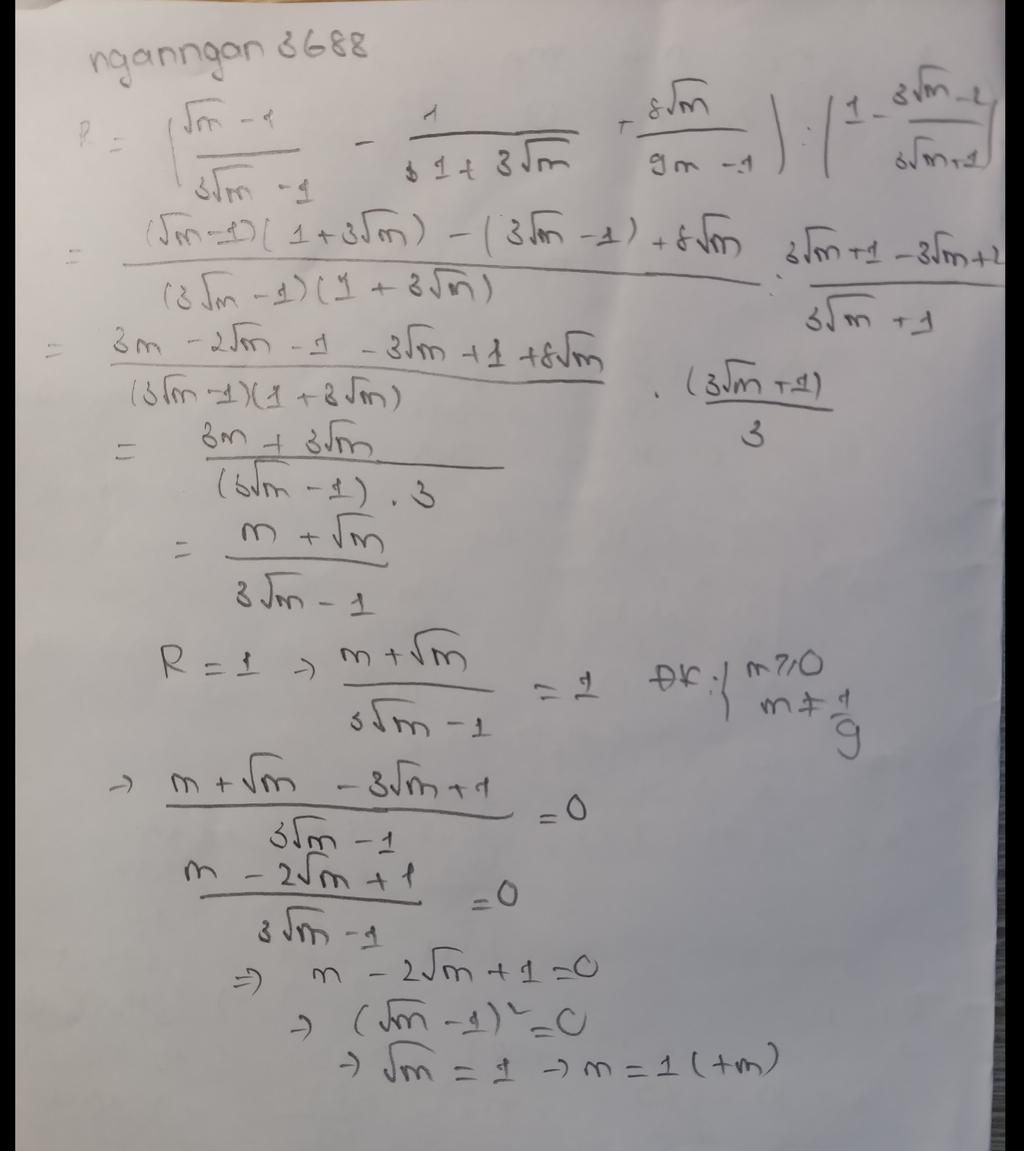 nganngan 3688
R = (\frac{\sqrt{m} - 1}{3\sqrt{m} - 1} - \frac{1}{1 + 3\sqrt{m}} + \frac{8\sqrt{m}}{9m - 1}) : (1 - \frac{3\sqrt{m} - 2}{3\sqrt{m} + 1})
= \frac{(\sqrt{m} - 1)(1 + 3\sqrt{m}) - (3\sqrt{m} - 1) + 8\sqrt{m}}{(3\sqrt{m} - 1)(1 + 3\sqrt{m})} : \frac{3\sqrt{m} + 1 - 3\sqrt{m} + 2}{3\sqrt{m} + 1}
= \frac{3m - 2\sqrt{m} - 1 - 3\sqrt{m} + 1 + 8\sqrt{m}}{(3\sqrt{m} - 1)(1 + 3\sqrt{m})} . \frac{(3\sqrt{m} + 1)}{3}
= \frac{3m + 3\sqrt{m}}{(3\sqrt{m} - 1) . 3}
= \frac{m + \sqrt{m}}{3\sqrt{m} - 1}
R = 1 → \frac{m + \sqrt{m}}{3\sqrt{m} - 1} = 1 ĐK: { m ≥ 0 m ≠ \frac{1}{9}
→ \frac{m + \sqrt{m} - 3\sqrt{m} + 1}{3\sqrt{m} - 1} = 0
\frac{m - 2\sqrt{m} + 1}{3\sqrt{m} - 1} = 0
⇒ m - 2\sqrt{m} + 1 = 0
→ (\sqrt{m} - 1)² = 0
→ \sqrt{m} = 1 → m = 1 (tm)